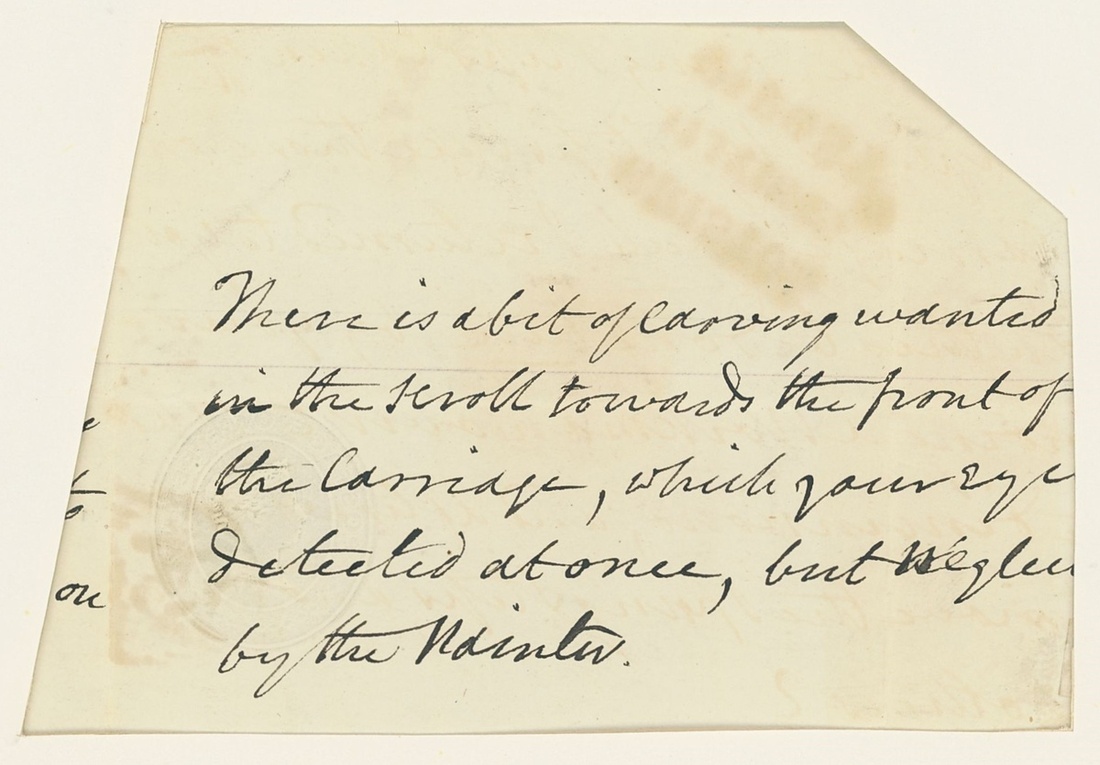 There is a bit of Carving wanted
in the scroll towards the front of
the Carriage, which your Eye
detected at once, but neglec
by the Painter.
on